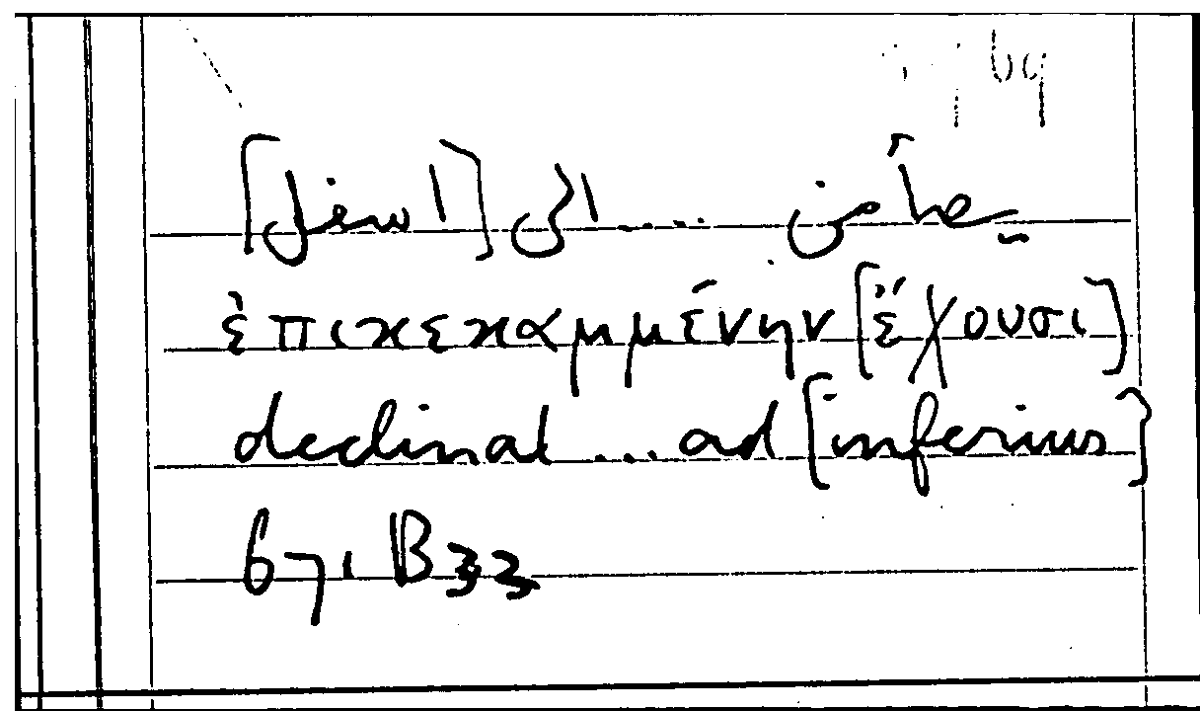 .... الى [اسفل]
ἐπικεκαμμένην [ἔχουσι]
declinat ... ad [inferius]
671 B33